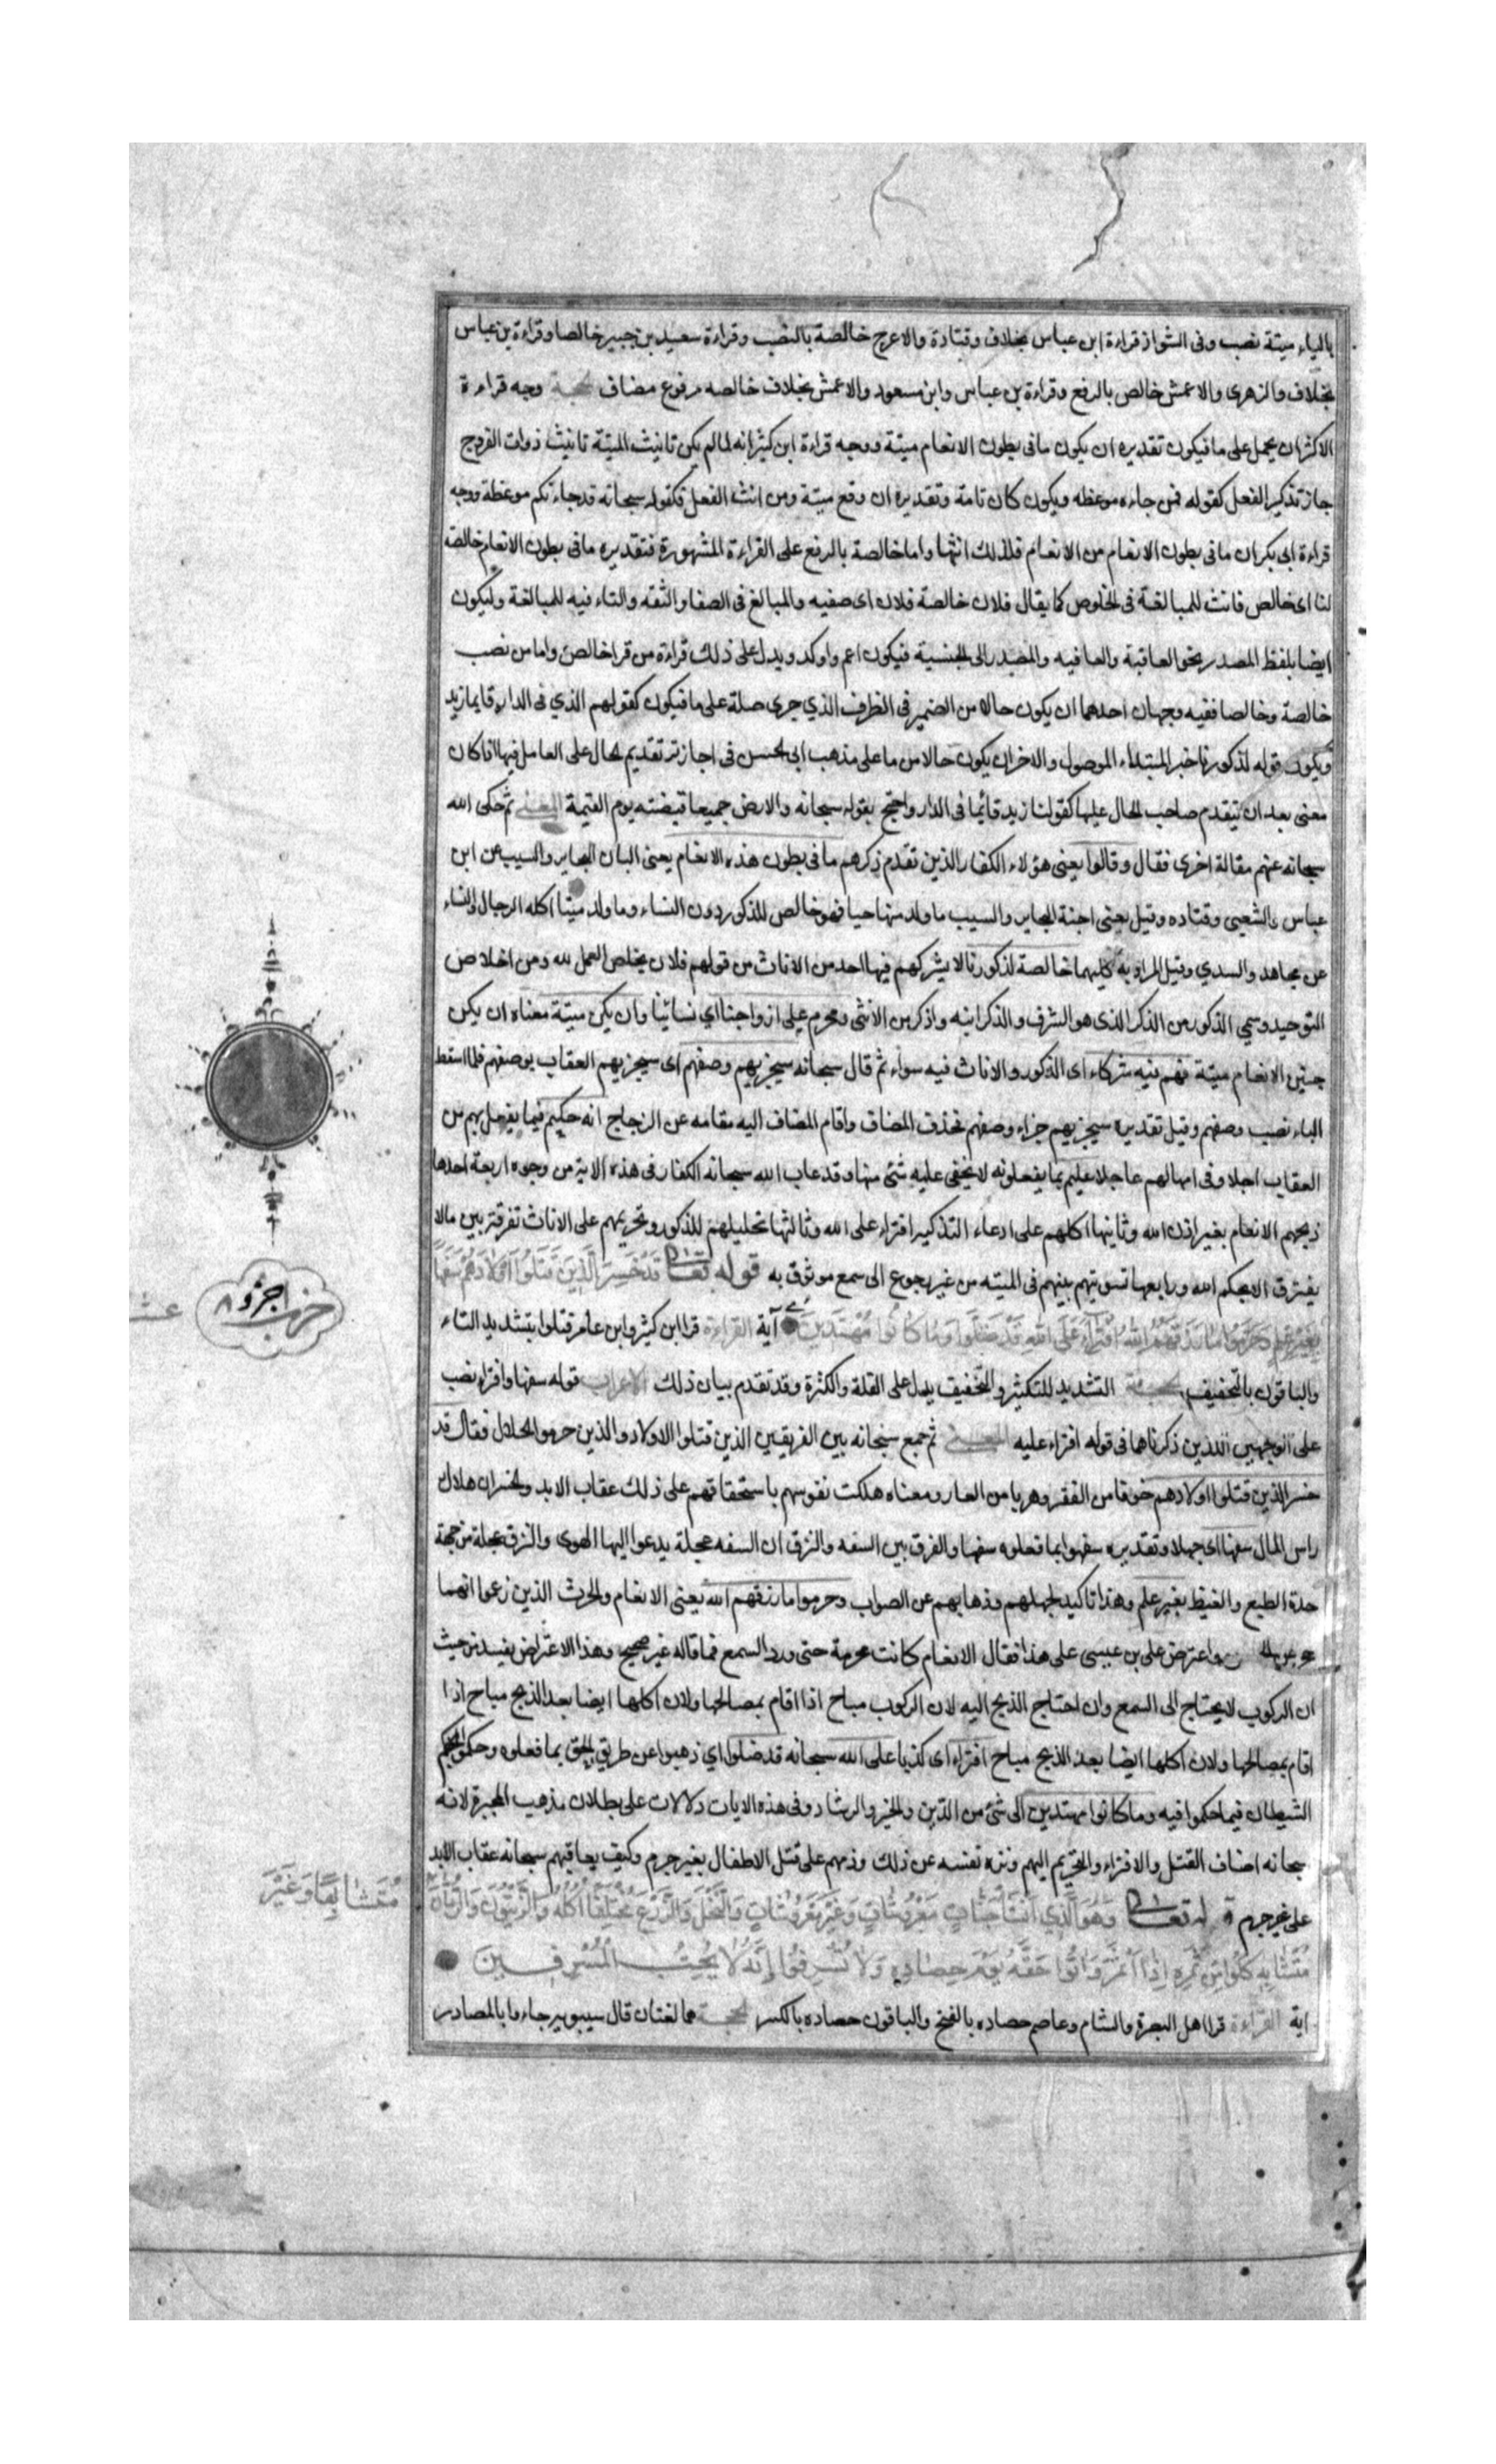 بالياء ميتة نصب وفى الشواذ قراءة ابن عباس بخلاف وقتادة والاعرج خالصة بالنصب وقراءة سعيد بن جبير خالصا وقراءة بن عباس
بخلاف والزهرى والاعمش خالص بالرفع وقراءة بن عباس وابن مسعود والاعمش بخلاف خالصه مرفوع مضاف الحجة وجه قراءة
الاكثر ان يحمل على ما فيكون تقديره ان يكون ما فى بطون الانعام ميتة ووجه قراءة ابن كثير انه لما لم يكن تانيث الميتة تانيث ذوات الفروج
جاز تذكير الفعل كقوله فمن جاءه موعظه ويكون كان تامة وتقديره ان وقع ميتة ومن انث الفعل فكقوله سبحانه قد جاءتكم موعظة ووجه
قراءة ابى بكر ان ما فى بطون الانعام من الانعام فلذلك انثها واما خالصة بالرفع على القراءة المشهورة فتقديره ما فى بطون الانعام خالصة
لنا اى خالص فانث للمبالغة فى الخلوص كما يقال فلان خالصة فلان اى صفيه والمبالغ فى الصفا والثقه والتاء فيه للمبالغة وليكون
ايضا بلفظ المصدر نحو العاقبة والعافيه والمصدر الى الجنسية فيكون اعم واوكد ويدل على ذلك قراءة من قرا خالص واما من نصب
خالصة وخالصا ففيه وجهان احدهما ان يكون حالا من الضمير فى الظرف الذي جرى صلة على ما فيكون كقولهم الذي فى الدار قايما زيد
ويكون قوله لذكورنا خبر المبتداء الموصول والاخر ان يكون حالا من ما على مذهب ابى الحسن فى اجازته تقديم الحال على العامل فيها اذا كان
معنى بعد ان تيقدم صاحب الحال عليها كقولنا زيد قائما فى الدار واحتج بقوله سبحانه والارض جميعا قبضته يوم القيمة المعنى ثم حكى الله
سبحانه عنهم مقالة اخرى فقال وقالوا يعنى هؤلاء الكفار الذين تقدم ذكرهم ما فى بطون هذه الانعام يعنى البان البحاير والسيب عن ابن
عباس والشعبى وقتاده وقيل يعنى اجنة البحاير والسيب ما ولد منها حيا فهو خالص للذكور دون النساء وما ولد ميتا اكله الرجال والنساء
عن مجاهد والسدي وقيل المراد به كليهما خالصة لذكورنا لا يشركهم فيها احد من الاناث من قولهم فلان يخلص العمل لله ومن اخلاص
التوحيد وسمي الذكور من الذكر الذى هو الشرف والذكر انبه واذكر من الانثى ومحرم على ازواجنا اي نسائنا وان يكن ميتة معناه ان يكن
جنين الانعام ميتة فهم فيه شركاء اى الذكور والاناث فيه سواء ثم قال سبحانه سيجزيهم وصفهم اى سيجزيهم العقاب بوصفهم فلما اسقط
الباء نصب وصفهم وقيل تقديره سيجزيهم جزاء وصفهم فحذف المضاف واقام المضاف اليه مقامه عن الزجاج انه حكيم فيما يفعل بهم من
العقاب اجلا وفى امهالهم عاجلا عليم بما يفعلونه لا يخفى عليه شئ منها وقد عاب الله سبحانه الكفار فى هذه الاية من وجوه اربعة احدها
ذبحهم الانعام بغير اذن الله وثانيها اكلهم على ادعاء التذكير افتراء على الله وثالثها تحليلهم للذكور وتحريمهم على الاناث تفرقة بين ما لا
يفترق الا بحكم الله ورابعها تسويتهم بينهم فى الميته من غير رجوع الى سمع موثوق به قوله تعالى قَدْ خَسِرَ الَّذِينَ قَتَلُوا اَوْلَادَهُمْ سَفَهًا
بِغَيْرِ عِلْمٍ وَحَرَّمُوا مَا رَزَقَهُمُ اللهُ افْتِرَاءً عَلَى اللهِ قَدْ ضَلُّوا وَمَا كَانُوا مُهْتَدِينَ آية القراءة قرا ابن كثير وابن عامر قتلوا بتشديد التاء
والباقون بالتخفيف الحجة التشديد للتكثير والتخفيف يدل على القلة والكثرة وقد تقدم بيان ذلك الاعراب قوله سفها وافتراء نصب
على الوجهين اللذين ذكرناهما فى قوله افتراء عليه المعنى ثم جمع سبحانه بين الفريقين الذين قتلوا الاولاد والذين حرموا الحلال فقال قد
خسر الذين قتلوا اولادهم خوفا من الفقر وهربا من العار ومعناه هلكت نفوسهم باستحقاقهم على ذلك عقاب الابد والخسران هلاك
راس المال سفها اى جهلا وتقديره سفهوا بما فعلوه سفها والفرق بين السفه والنزق ان السفه عجلة يدعوا اليها الهوى والنزق عجلة من جهة
حدة الطبع والغيظ بغير علم وهذا تاكيد لجهلهم وذهابهم عن الصواب وحرموا ما رزقهم الله يعنى الانعام والحرث الذين زعموا انهما
واعترض على بن عيسى على هذا فقال الانعام كانت محرمة حتى ورد السمع فما قاله غير صحيح وهذا الاعتراض يفسد من حيث
ان الركوب لا يحتاج الى السمع وان احتاج الذبح اليه لان الركوب مباح اذا اقام بمصالحها ولان اكلها ايضا بعد الذبح مباح اذا
اقام بمصالحها ولان اكلها ايضا بعد الذبح مباح افتراء اى كذبا على الله سبحانه قد ضلوا اي ذهبوا عن طريق الحق بما فعلوه وحكموا بحكم
الشيطان فيما حكموا فيه وما كانوا مهتدين الى شئ من الدين والخير والرشاد وفى هذه الايات دلالات على بطلان مذهب المجبرة لانه
سبحانه اضاف القتل والافتراء والتحريم اليهم ونزه نفسه عن ذلك وذمهم على قتل الاطفال بغير جرم وكيف يعاقبهم سبحانه عقاب الابد
على غير جرم قوله تعالى وَهُوَ الَّذِي اَنْشَأَ جَنَّاتٍ مَعْرُوشَاتٍ وَغَيْرَ مَعْرُوشَاتٍ وَالنَّخْلَ وَالزَّرْعَ مُخْتَلِفًا اُكُلُهُ وَالزَّيْتُونَ وَالرُّمَّانَ
مُتَشَابِهٍ كُلُوا مِنْ ثَمَرِهِ اِذَا اَثْمَرَ وَاٰتُوا حَقَّهُ يَوْمَ حِصَادِهِ وَلَا تُسْرِفُوا اِنَّهُ لَا يُحِبُّ الْمُسْرِفِينَ
اية القراءة قرا اهل البصرة والشام وعاصم حصاده بالفتح والباقون حصاده بالكسر الحجة هما لغتان قال سيبويه جاءوا بالمصادر
حزب اجزو ٨
مُتَشَابِهًا وَغَيْرَ